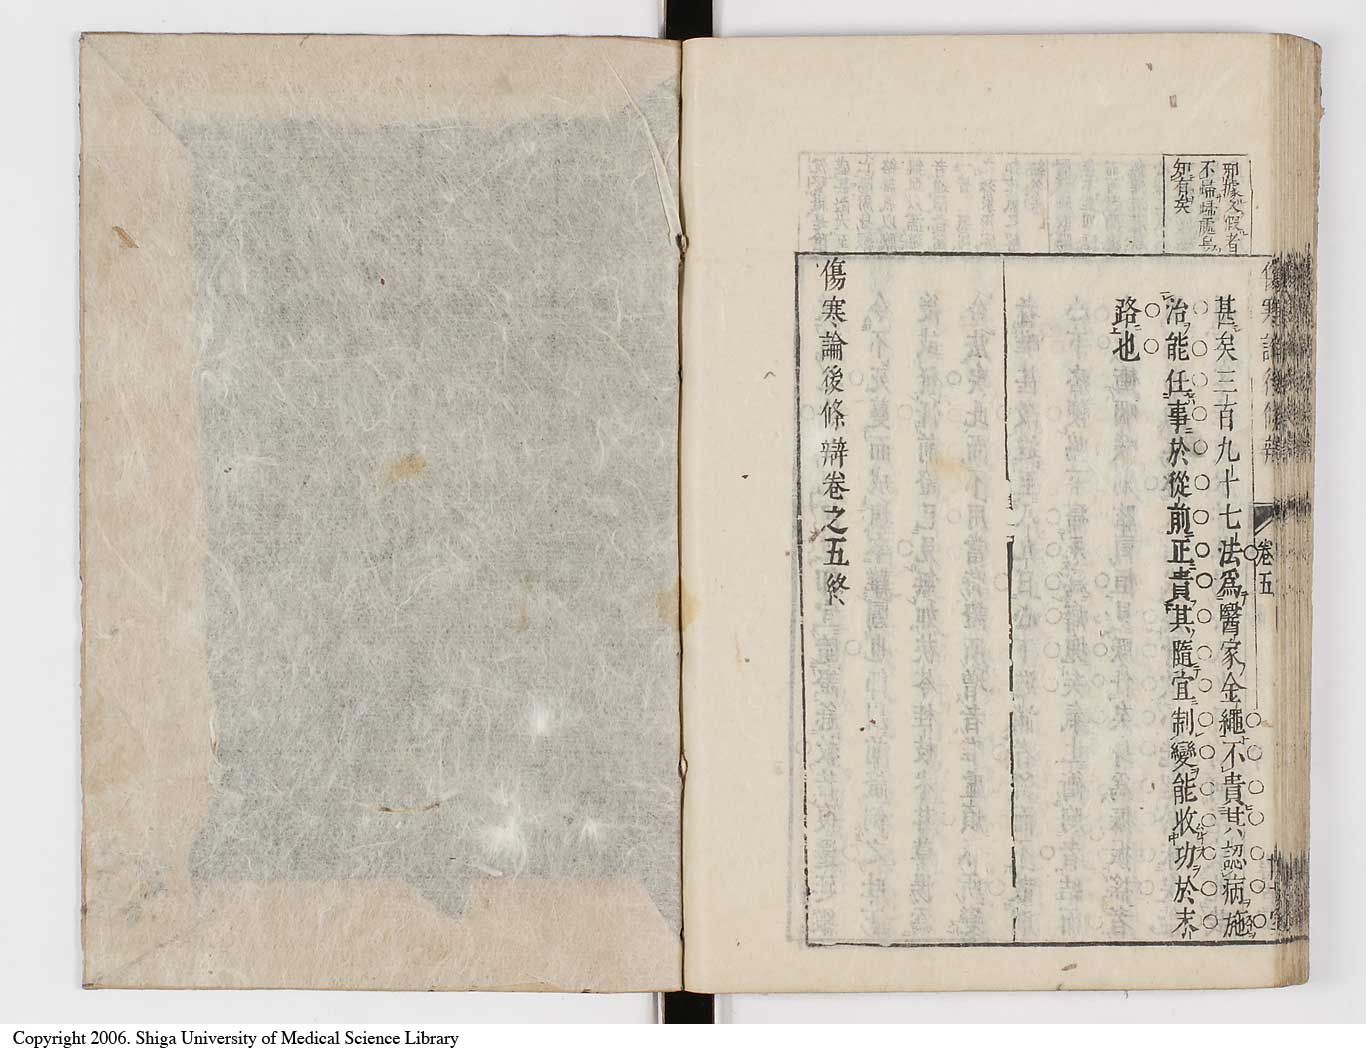 邪據文假者
不歸歸處長
知有矣
傷寒論後條辯
卷五
甚矣三百九十七法爲醫家金繩不貴其認病施
治能任事於從前正貴其隨宜制變能收功於末
路也
傷寒論後條辯卷之五終
Copyright 2006. Shiga University of Medical Science Library